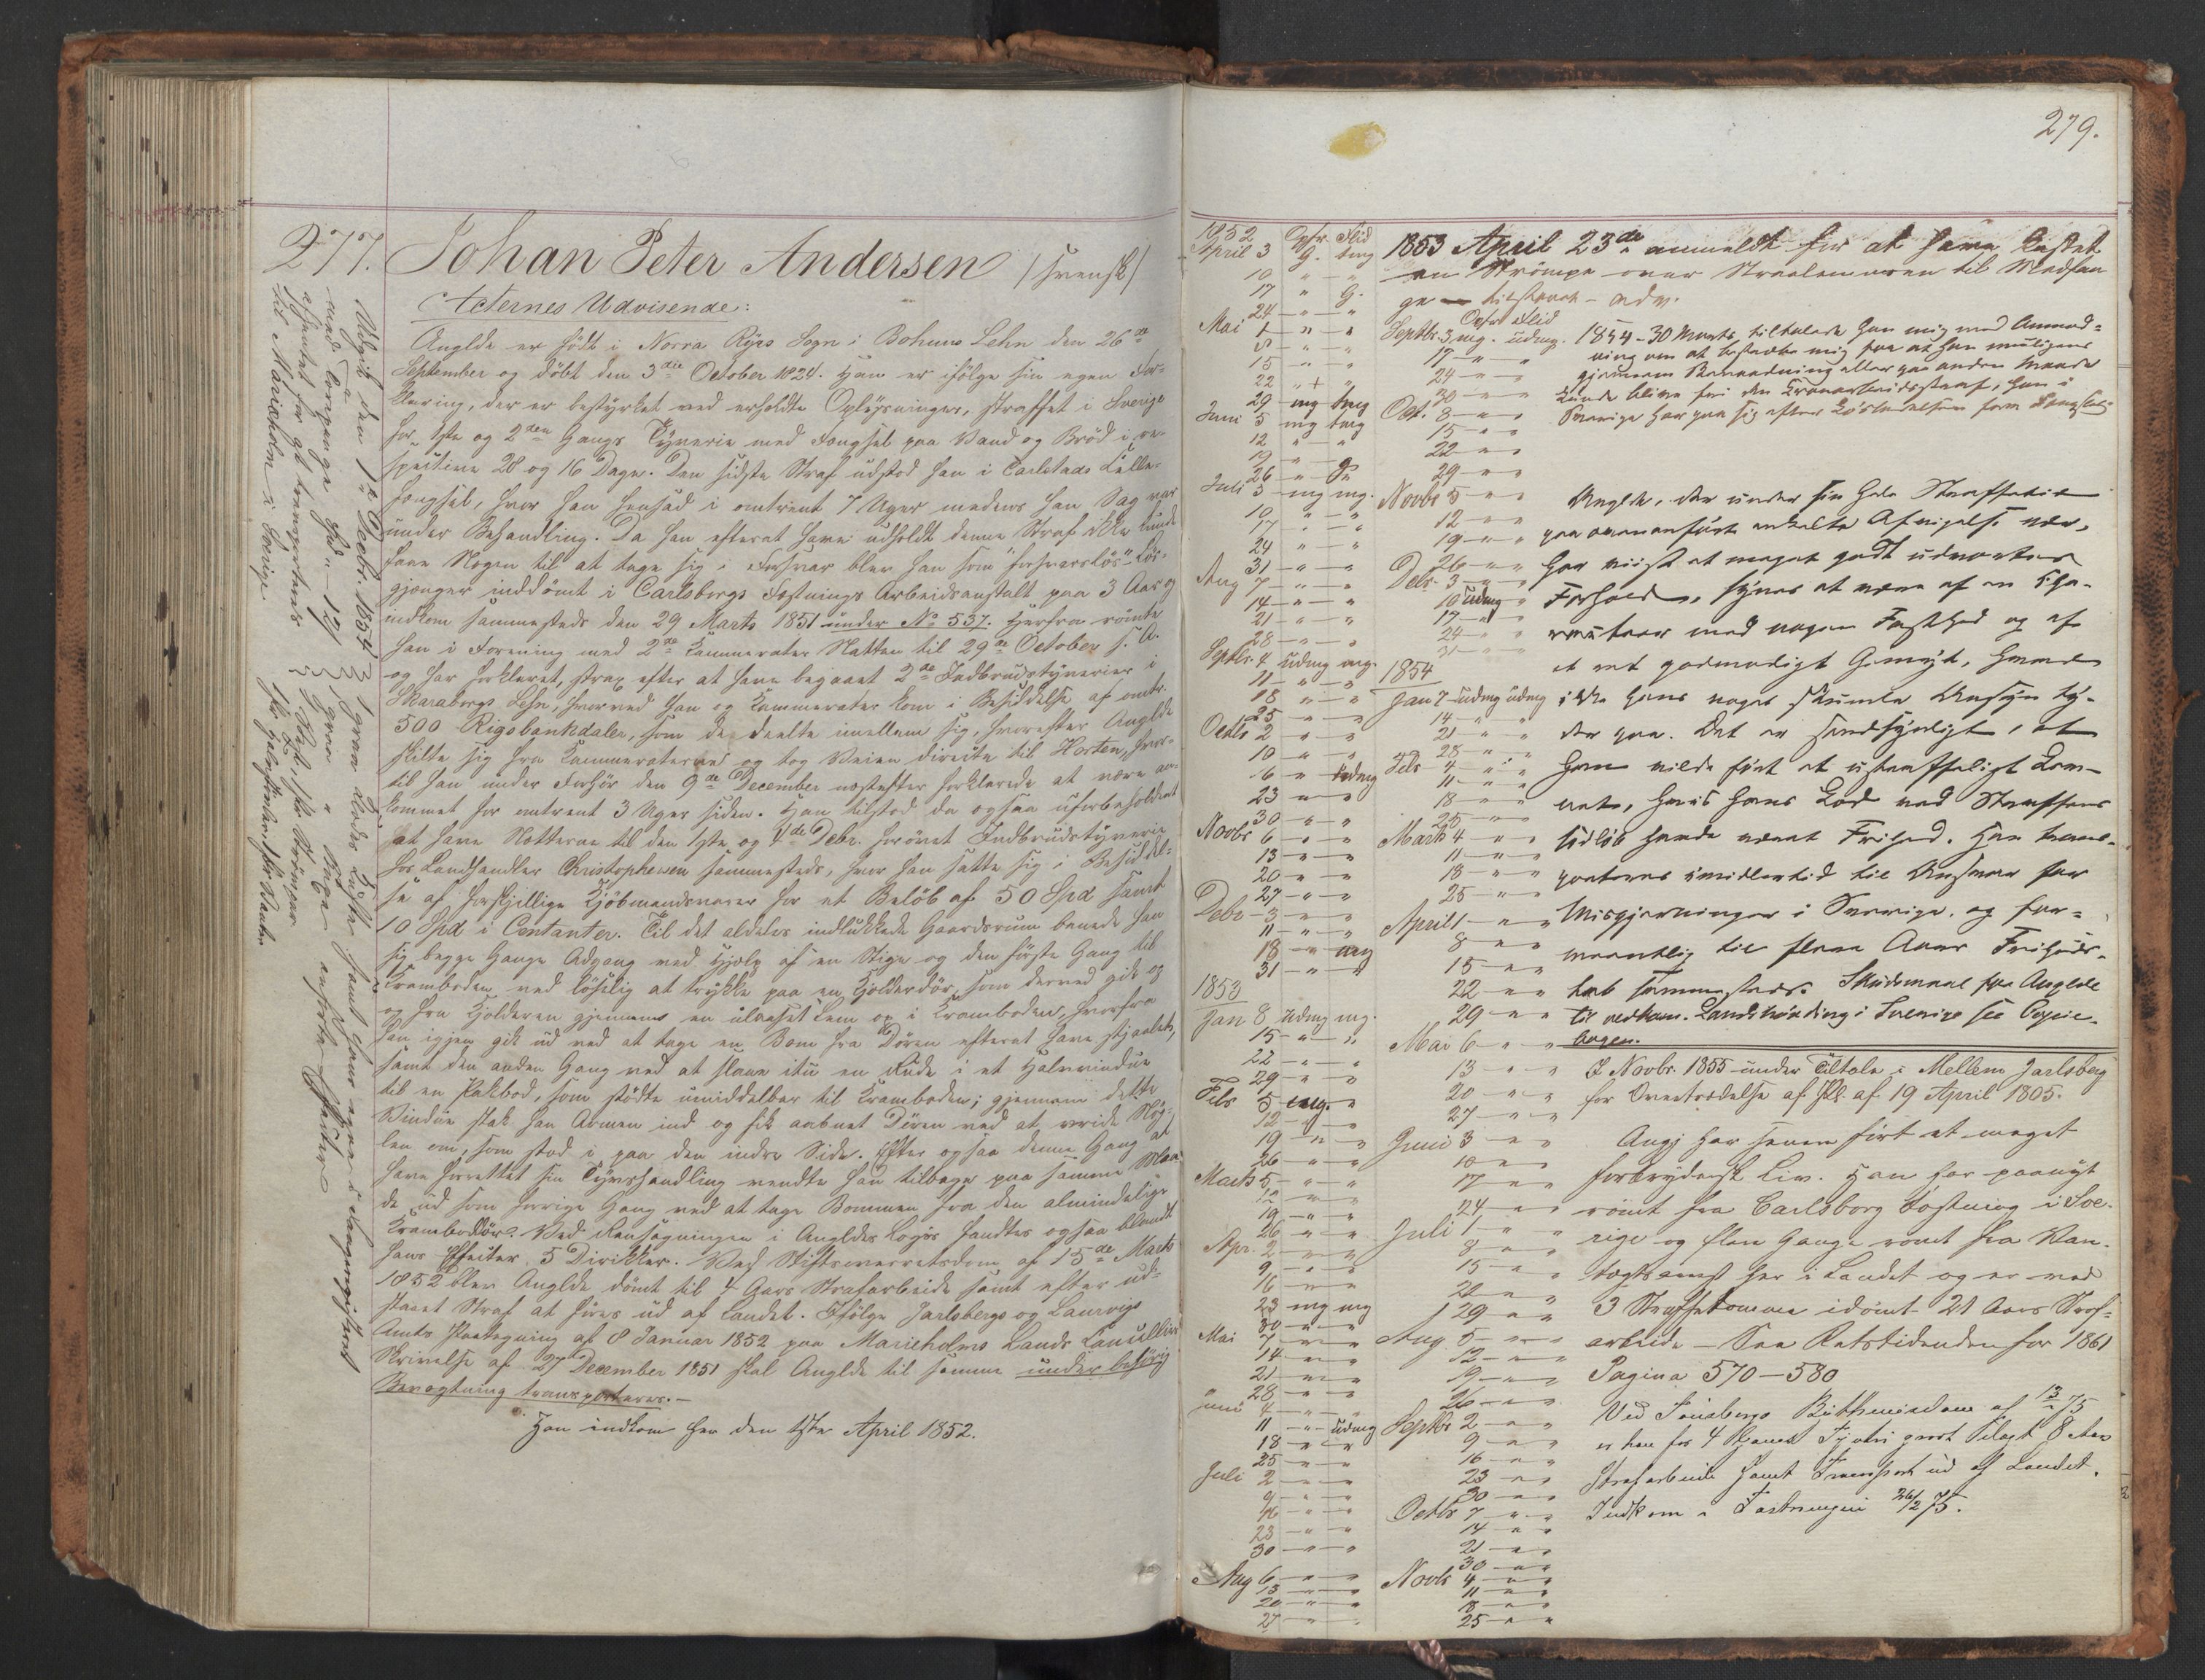 277. Johan Peter Andersen /svensk/
Acternes Udvisende:
Anglde er født i Norra Ryrs Sogn i Bohuus Lehn den 26de
September og døbt den 3die October 1824. Han er ifølge sin egen For-
klaring, der er bestyrket ved erholdte Oplysninger, straffet i Sverige
for 1ste og 2den Gangs Tyverie med Fængsel paa Vand og Brød i re-
spective 28 og 16 Dage. Den sidste Straf udstod han i Carlstads Celle-
fængsel, hvor han hensad i omtrent 7 Uger medens hans Sag var
under Behandling. Da han efterat have udholdt denne Straf ikke kunde
faae Nogen til at tage sig i Forsvar blev han som "forsvarsløs" Løs-
gjænger inddømt i Carlsborgs Fæstnings Arbeidsanstalt paa 3 Aar og
indkom sammesteds den 29 Marts 1851 under No 537. Herfra rømte
han i Forening med 2de Kammerater Natten til 29de October s. A.
og har forklaret, strax efter at have begaaet 2de Indbrudstyverier i
Skaraborgs Lehn, hvorved han og Kammerater kom i Besiddelse af omtr.
500 Rigsbankdaler, som de deelte imellem sig, hvorefter Anglde
skilte sig fra Kammeraterne og tog Veien directe til Horten, hvor-
til han under Forhør den 9de December næstefter forklarede at være an-
kommet for omtrent 3 Uger siden. Han tilstod da ogsaa uforbeholdent
at have Nætterne til den 1ste og 4de Decbr. forøvet Indbrudstyverie
hos Landhandler Christophersen sammesteds, hvor han satte sig i Besiddel-
se af forskjellige Kjøbmandsvarer for et Beløb af 50 Spd samt
10 Spd i Contanter. Til det aldeles indlukkede Gaardsrum banede han
sig begge Gange Adgang ved Hjelp af en Stige og den første Gang til
Kramboden ved løselig at trykke paa en Kjælderdør, som derved gik op
og fra Kjælderen gjennem en ulaaset Lem op i Kramboden, hvorfra
han igjen gik ud ved at tage en Bom fra Døren efterat have stjaalet,
samt den anden Gang ved at slaae itu en Rude i et Halvvindue
til en Pakbod, som stødte umiddelbar til Kramboden; gjennem dette
Vindue stak han Armen ind og fik aabnet Døren ved at vride Nøg-
len om, som stod i paa den indre Side. Efter ogsaa denne Gang at
have forrettet sin Tyvshandling vendte han tilbage paa samme Maa-
de ud som forrige Gang ved at tage Bommen fra den almindelige
Krambodør. Ved Ransagningen i Angldes Logis fandtes ogsaa blandt
hans Effecter 5 Dirikker. Ved Stiftsoverretsdom af 15de Marts
1852 blev Anglde dømt til 4 Aars Strafarbeide samt efter ud-
staaet Straf at føres ud af Landet. Ifølge Jarlsbergs og Laurvigs
Amts Paategning af 8 Januar 1852 paa Marieholms Lands Cancellies
Skrivelse af 27 December 1851 skal Anglde til samme under behørig
Bevogtning transporteres.-
Han indkom her den 1ste April 1852.
Udgik den 1ste Decbr. 1854
med Penge Spd " - 121
afhentet for at transporteres
til Marieholm i Sverige
1 graa Klædes Kufte samt hans egne i Fangeregisteret
1 graa " Buxe anførte Effecter
1 Skjorte, 1 Pr Strømper
1 Pr Halvstøvler, 1 Par Vanter
279.
1852 Opfr. Flid
April 3 G. tmg
10 " "
17 " G.
24 " "
Mai 1 " "
8 " "
15 " "
22 " + "
29 mg tmg
Juni 5 mg tmg
12 " "
19 " "
26 " G
Juli 3 mg mg.
10 " "
17 " "
24 " "
31 " "
Aug 7 " "
14 " "
21 " "
28 " "
Septbr. 4 udmg mg.
11 " "
18 " "
25 " "
Octbr 2 " "
10 " "
16 " udmg
23 " "
30 " "
Novbr 6 " "
13 " "
20 " "
27 " "
Debr 3 " "
11 " "
18 " mg
31 " "
1853
Jan 8 udmg mg.
15 " "
22 " "
29 " "
Feb 5 mg. "
12 " "
19 " "
26 " "
Marts 5 " "
12 " "
19 " "
26 " "
Apr. 2 " "
9 " "
16 " "
23 mg mg
30 " "
Mai 7 " "
14 " "
21 " "
28 " "
Juni 4 " "
11 " udmg
18 " "
25 " "
Juli 2 " "
9 " "
16 " "
23 " "
30 " "
Aug 6 " "
13 " "
20 " "
27 " "
1853 April 23de anmeldt for at have kastet
en Strømpe over Straalemuren til Medfan
ge - tilstaaet - adv.
Opfr Flid
Septbr. 3 mg. udmg.
17 " "
24 " "
30 " "
Oct. 8 " "
15 " "
22 " "
29 " "
Novbr 5 " "
12 " "
19 " "
26 " "
Debr. 3 " "
10 udmg "
17 " "
24 " "
31 " "
1854
Jan 7 udmg udmg
14 " "
21 " "
28 " "
Feb 4 " "
11 " "
18 " "
25 " "
Marts 4 " "
11 " "
18 " "
25 " "
April 1 " "
8 " "
15 " "
22 " "
29 " "
Mai 6 " "
13 " "
20 " "
27 " "
Juni 3 " "
10 " "
17 " "
24 " "
Juli 1 " "
8 " "
15 " "
22 " "
29 " "
Aug 5 " "
12 " "
19 " "
26 " "
Septbr 2 " "
9 " "
16 " "
23 " "
30 " "
Octbr 7 " "
14 " "
21 " "
30 " "
Novbr 4 " "
11 " "
18 " "
25 " "
1854 - 30 Marts tiltalede han mig med Anmod-
ning om at bestræbe mig for at han muligens
gjennem Benaadning eller paa anden Maade
kunde blive fri den Kronarbeidsstraf, han i
Sverige har paa sig efter Løsladelsen som
Anglde, der under sin hele Straffetid
paa ovenanførte enkelte Afvigelse nær,
har viist et meget godt udvortes
Forhold, synes at være af en Cha-
racteer med nogen Fasthed og af
et ret godmodigt Gemyt, hvorpaa
ikke hans noget skumle Ansyn ty-
der paa. Det er sandsynligt, at
han vilde ført et ustraffeligt Lev-
net, hvis hans Lod ved Straffens
Udløb havde været Frihed. Han trans-
porteres imidlertid til Ansvar for
Misgjerninger i Sverige, og for-
mentlig til flere Aars Friheds-
tab sammesteds. Skudsmaal for Anglde
til vedkom. Landshøvding i Sverige see Copie-
bogen.
I Novbr. 1855 under Tiltale i Mellem Jarlsberg
for Overtrædelse af Pl. af 19 April 1805.
Angj har senere ført et meget
forbrydersk Liv. Han har paanyt
rømt fra Carlsborg Fæstning i Sve-
rige og flere Gange rømt fra Van-
togtsarrest her i Landet og er ved
3 Straffedomme idømt 21 Aars Straf-
arbeide - See Retstidenden for 1861
Pagina 570-580
Ved Tønsbergs Bythingsdom af 13/2 75
er han for 4 Gangs Tyveri grovt ilagt 8 Aars
Strafarbeide samt Transport ud af Landet.
Indkom i Fæstningen 26/2 75.